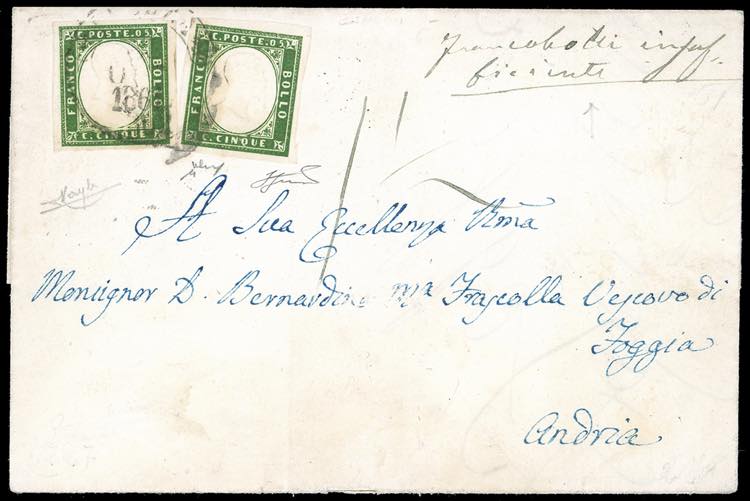 C. POSTE. 05.
FRANCO
BOLLO
C. CINQUE
C. POSTE. 05.
FRANCO
BOLLO
C. CINQUE
Francobolli insuf-
ficienti
A Sua Eccellenza Rma
Monsignor D. Bernardino Ma Frascolla Vescovo di
Foggia
Andria